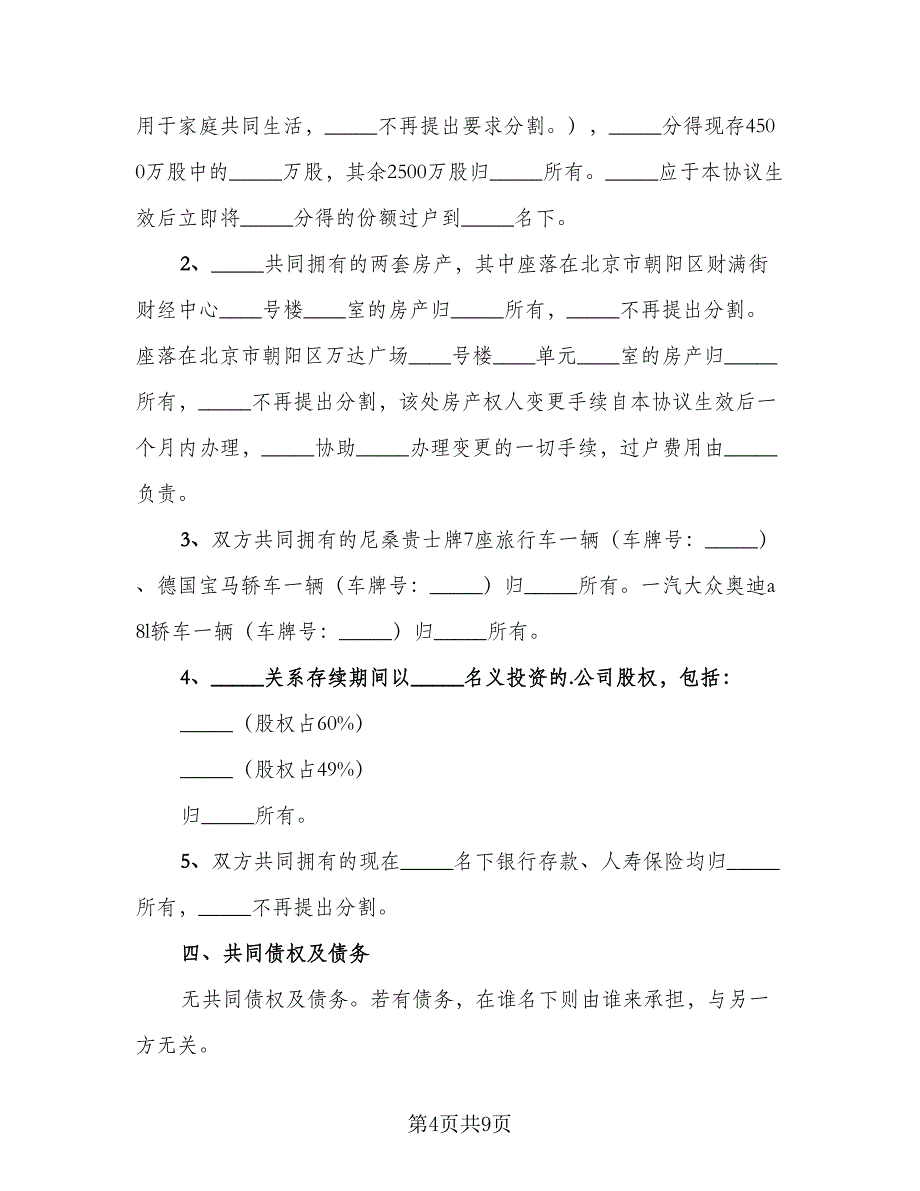 用于家庭共同生活，_____不再提出要求分割。），_____分得现存450
0万股中的_____万股，其余2500万股归_____所有。_____应于本协议生
效后立即将_____分得的份额过户到_____名下。
2、_____共同拥有的两套房产，其中座落在北京市朝阳区财满街
财经中心____号楼____室的房产归_____所有，_____不再提出分割。
座落在北京市朝阳区万达广场____号楼____单元____室的房产归_____
所有，_____不再提出分割，该处房产权人变更手续自本协议生效后一
个月内办理，_____协助_____办理变更的一切手续，过户费用由_____
负责。
3、双方共同拥有的尼桑贵士牌7座旅行车一辆（车牌号：_____）
、德国宝马轿车一辆（车牌号：_____）归_____所有。一汽大众奥迪a
8l轿车一辆（车牌号：_____）归_____所有。
4、_____关系存续期间以_____名义投资的.公司股权，包括：
_____（股权占60%）
_____（股权占49%）
归_____所有。
5、双方共同拥有的现在_____名下银行存款、人寿保险均归_____
所有，_____不再提出分割。
四、共同债权及债务
无共同债权及债务。若有债务，在谁名下则由谁来承担，与另一
方无关。
第4页共9页